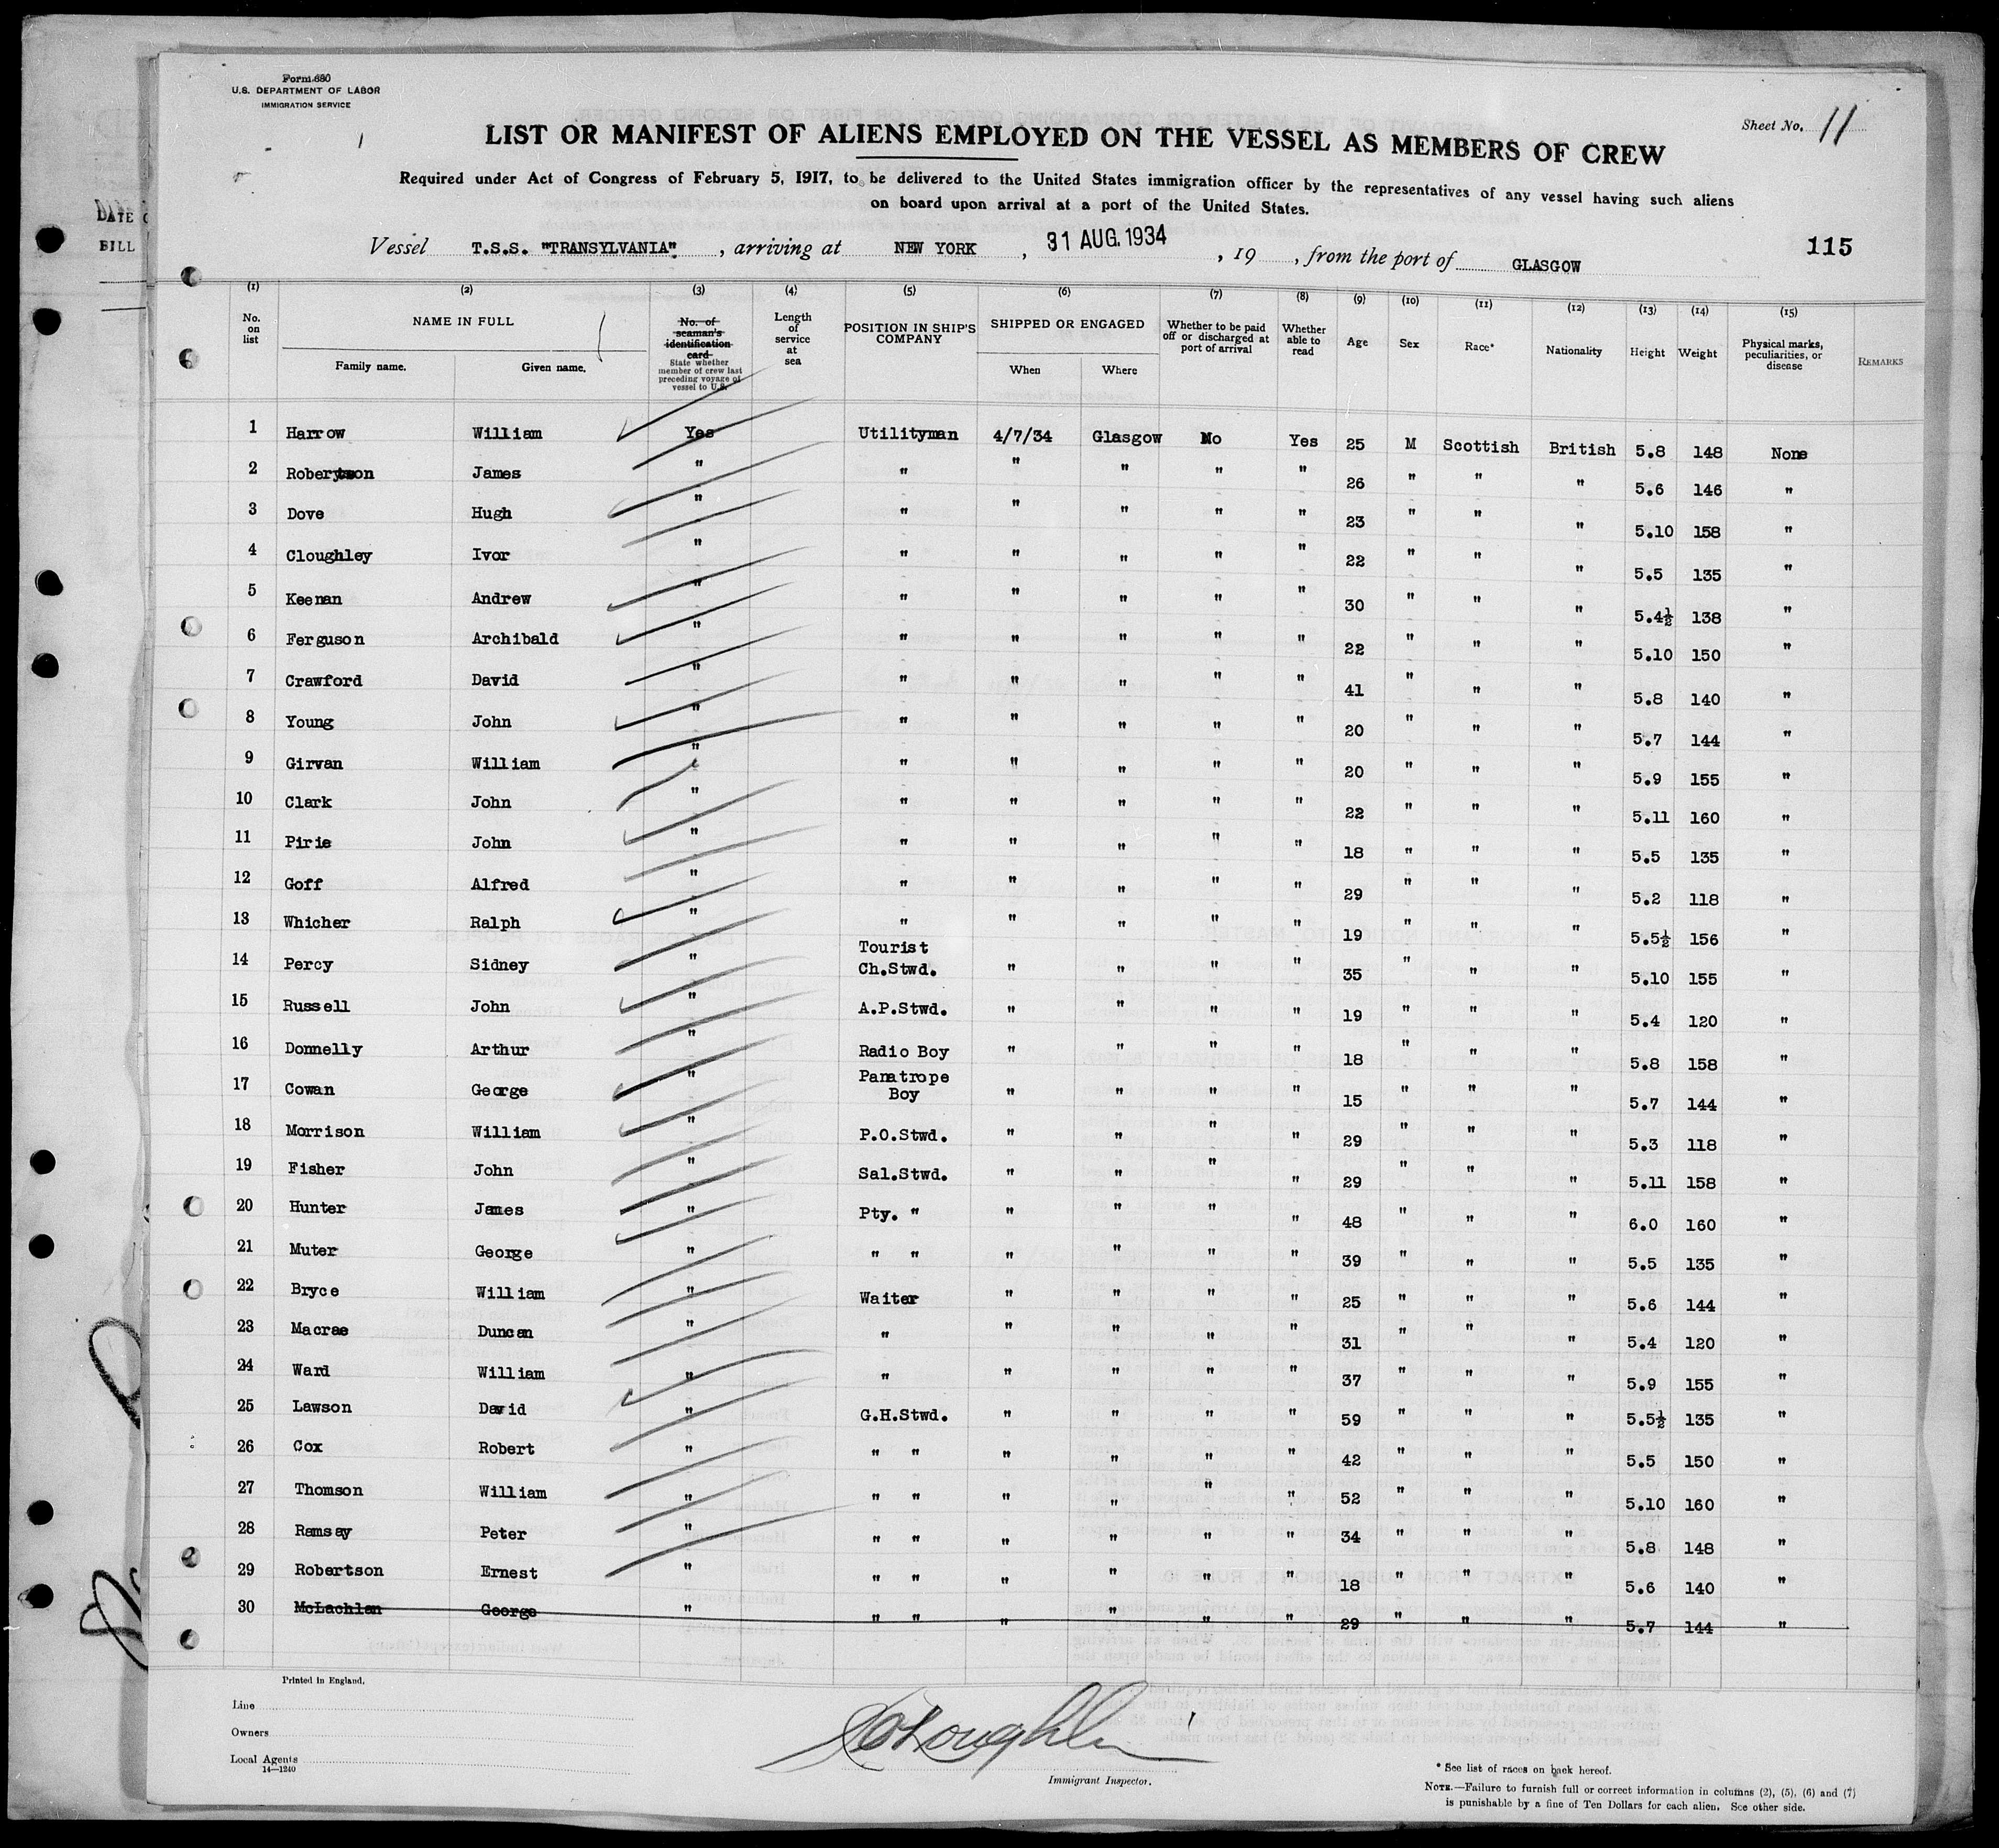 Form 680
U.S. DEPARTMENT OF LABOR
IMMIGRATION SERVICE
Sheet No. 11
LIST OR MANIFEST OF ALIENS EMPLOYED ON THE VESSEL AS MEMBERS OF CREW
Required under Act of Congress of February 5, 1917, to be delivered to the United States immigration officer by the representatives of any vessel having such aliens
on board upon arrival at a port of the United States.
DATE
BILL
Vessel T.S.S. "TRANSYLVANIA", arriving at NEW YORK, 31 AUG. 1934, 19 , from the port of GLASGOW
115
(1) (2) (3) (4) (5) (6) (7) (8) (9) (10) (11) (12) (13) (14) (15)
No. on list NAME IN FULL Family name. Given name. No. of seaman's identification card State whether member of crew last preceding voyage of vessel to U.S. Length of service at sea POSITION IN SHIP'S COMPANY SHIPPED OR ENGAGED When Where Whether to be paid off or discharged at port of arrival Whether able to read Age Sex Race* Nationality Height Weight Physical marks, peculiarities, or disease REMARKS
1 Harrow William Yes Utilityman 4/7/34 Glasgow No Yes 25 M Scottish British 5.8 148 None
2 Robertson James " " " " " " 26 " " " 5.6 146 "
3 Dove Hugh " " " " " " 23 " " " 5.10 158 "
4 Cloughley Ivor " " " " " " 22 " " " 5.5 135 "
5 Keenan Andrew " " " " " " 30 " " " 5.4½ 138 "
6 Ferguson Archibald " " " " " " 22 " " " 5.10 150 "
7 Crawford David " " " " " " 41 " " " 5.8 140 "
8 Young John " " " " " " 20 " " " 5.7 144 "
9 Girvan William " " " " " " 20 " " " 5.9 155 "
10 Clark John " " " " " " 22 " " " 5.11 160 "
11 Pirie John " " " " " " 18 " " " 5.5 135 "
12 Goff Alfred " " " " " " 29 " " " 5.2 118 "
13 Whicher Ralph " " " " " " 19 " " " 5.5½ 156 "
14 Percy Sidney " Tourist Ch.Stwd. " " " " 35 " " " 5.10 155 "
15 Russell John " A.P.Stwd. " " " " 19 " " " 5.4 120 "
16 Donnelly Arthur " Radio Boy " " " " 18 " " " 5.8 158 "
17 Cowan George " Panatrope Boy " " " " 15 " " " 5.7 144 "
18 Morrison William " P.O.Stwd. " " " " 29 " " " 5.3 118 "
19 Fisher John " Sal.Stwd. " " " " 29 " " " 5.11 158 "
20 Hunter James " Pty. " " " " " 48 " " " 6.0 160 "
21 Muter George " " " " " " " 39 " " " 5.5 135 "
22 Bryce William " Waiter " " " " 25 " " " 5.6 144 "
23 Macrae Duncan " " " " " " 31 " " " 5.4 120 "
24 Ward William " " " " " " 37 " " " 5.9 155 "
25 Lawson David " G.H.Stwd. " " " " 59 " " " 5.5½ 135 "
26 Cox Robert " " " " " " " 42 " " " 5.5 150 "
27 Thomson William " " " " " " " 52 " " " 5.10 160 "
28 Ramsay Peter " " " " " " " 34 " " " 5.8 148 "
29 Robertson Ernest " " " " " " " 18 " " " 5.6 140 "
30 McLachlan George " " " " " " " 29 " " " 5.7 144 "
Printed in England.
Line
Owners
Local Agents
14—1240
Immigrant Inspector.
* See list of races on back hereof.
NOTE.—Failure to furnish full or correct information in columns (2), (5), (6) and (7)
is punishable by a fine of Ten Dollars for each alien. See other side.